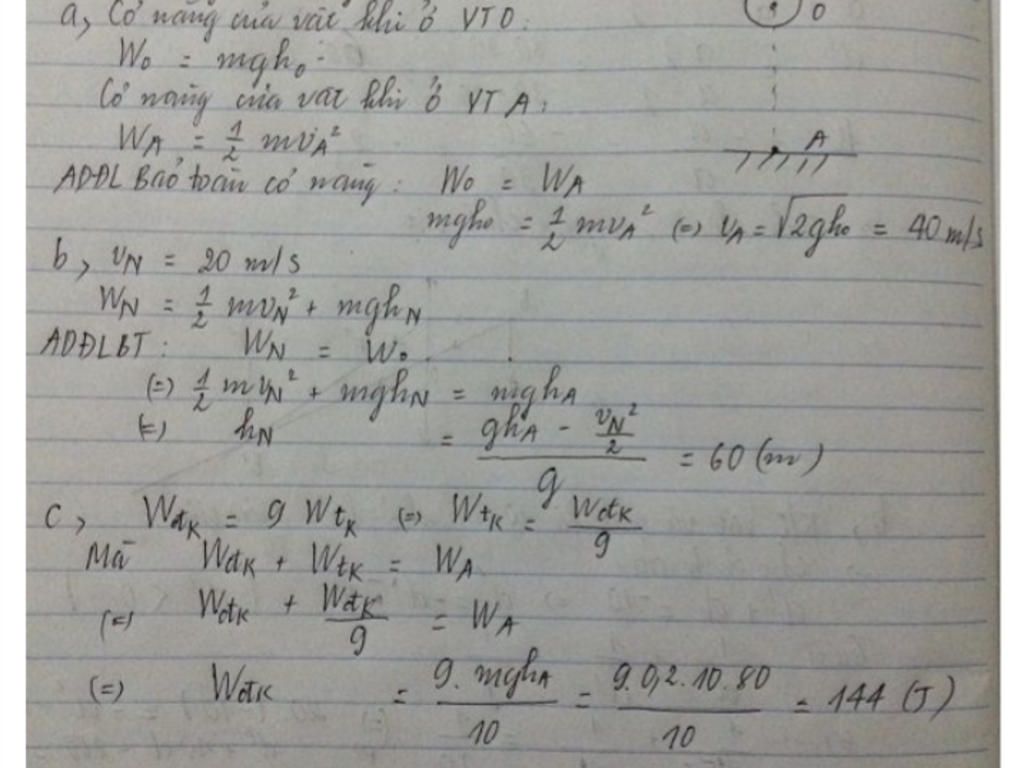 a, Cơ năng của vật khi ở VTO:
O
W₀ = mgh₀
Cơ năng của vật khi ở VT A:
A
W_A = 1/2 mv_A²
ADĐL Bảo toàn cơ năng: W₀ = W_A
mgh₀ = 1/2 mv_A² (=) v_A = √2gh₀ = 40 m/s
b, v_N = 20 m/s
W_N = 1/2 mv_N² + mgh_N
ADĐLBT: W_N = W₀
(=) 1/2 mv_N² + mgh_N = mgh_A
(=) h_N = (gh_A - v_N²/2)/g = 60 (m)
c, Wđ_K = 9 Wt_K (=) Wt_K = Wđ_K/9
Mà Wđ_K + Wt_K = W_A
(=) Wđ_K + Wđ_K/9 = W_A
(=) Wđ_K = 9.mgh_A/10 = 9.0,2.10.80/10 = 144 (J)